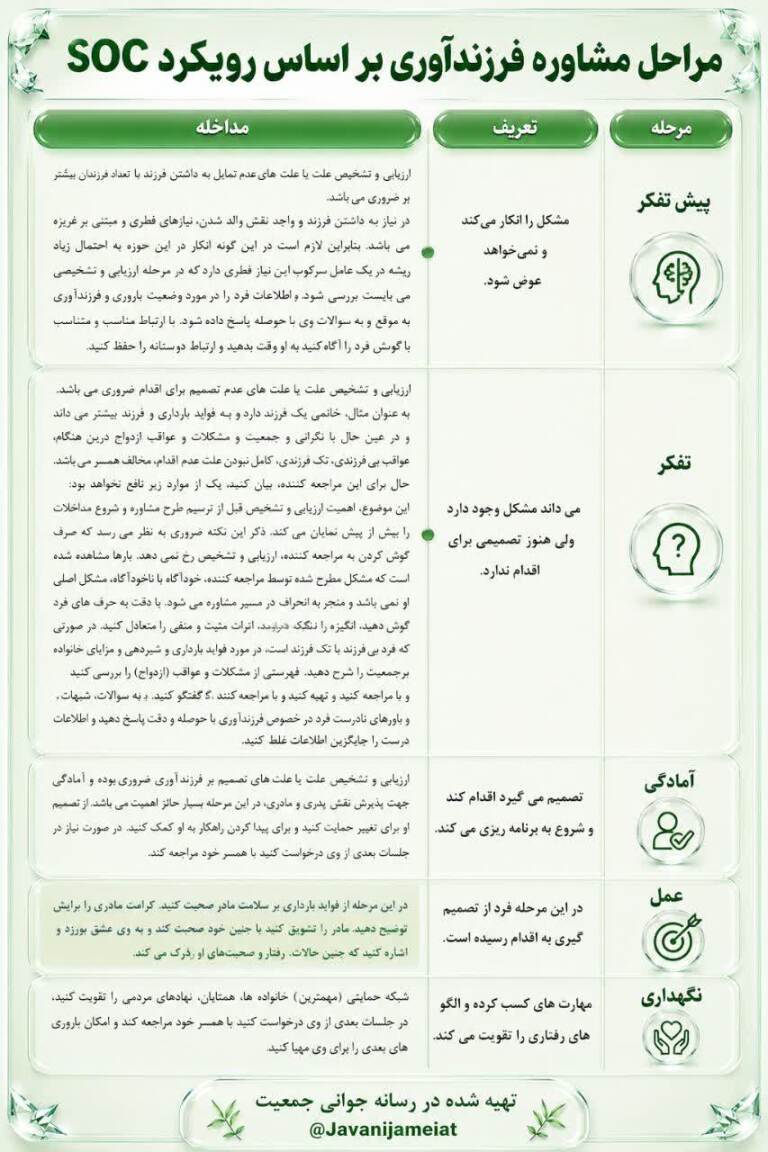 مراحل مشاوره فرزندآوری بر اساس رویکرد SOC
مرحله
تعریف
مداخله
پیش تفکر
مشکل را انکار می‌کند
و نمی‌خواهد
عوض شود.
ارزیابی و تشخیص علت یا علت های عدم تمایل به داشتن فرزند یا تعداد فرزندان بیشتر
بر ضروری می باشد.
در نیاز به داشتن فرزند و واجد نقش والد شدن، نیازهای فطری و مبتنی بر غریزه
می باشد. بنابراین لازم است در این گونه انکار در این حوزه به احتمال زیاد
ریشه در یک عامل سرکوب این نیاز فطری دارد که در مرحله ارزیابی و تشخیصی
می بایست بررسی شود. و اطلاعات فرد را در مورد وضعیت باروری و فرزندآوری
به موقع و به سوالات وی با حوصله پاسخ داده شود. با ارتباط مناسب و متناسب
با گوش فرد را آگاه کنید به او وقت بدهید و ارتباط دوستانه را حفظ کنید.
تفکر
می داند مشکل وجود دارد
ولی هنوز تصمیمی برای
اقدام ندارد.
ارزیابی و تشخیص علت یا علت های عدم تصمیم برای اقدام ضروری می باشد.
به عنوان مثال، خانمی یک فرزند دارد و به فواید بارداری و فرزند بیشتر می داند
و در عین حال با نگرانی و جمعیت و مشکلات و عواقب ازدواج درین هنگام،
عواقب بی فرزندی، تک فرزندی، کامل نبودن علت عدم اقدام، مخالف همسر می باشد.
حال برای این مراجعه کننده، بیان کنید، یک از موارد زیر نافع نخواهد بود:
این موضوع، اهمیت ارزیابی و تشخیص قبل از ترسیم طرح مشاوره و شروع مداخلات
را بیش از پیش نمایان می کند. ذکر این نکته ضروری به نظر می رسد که صرف
گوش کردن به مراجعه کننده، ارزیابی و تشخیص رخ نمی دهد. بارها مشاهده شده
است که مشکل مطرح شده توسط مراجعه کننده، خودآگاه یا ناخودآگاه، مشکل اصلی
او نمی باشد و منجر به انحراف در مسیر مشاوره می شود. با دقت به حرف های فرد
گوش دهید، انگیزه را اثرات مثبت و منفی را متعادل کنید. در صورتی
که فرد بی فرزند یا تک فرزند است، در مورد فواید بارداری و شیردهی و مزایای خانواده
پرجمعیت را شرح دهید. فهرستی از مشکلات و عواقب (ازدواج) را بررسی کنید
و با مراجعه کنید و تهیه کنید و با مراجعه کنند گفتگو کنید. به سوالات، شبهات،
و باورهای نادرست فرد در خصوص فرزندآوری با حوصله و دقت پاسخ دهید و اطلاعات
درست را جایگزین اطلاعات غلط کنید.
آمادگی
تصمیم می گیرد اقدام کند
و شروع به برنامه ریزی می کند.
ارزیابی و تشخیص علت یا علت های تصمیم بر فرزند آوری ضروری بوده و آمادگی
جهت پذیرش نقش پدری و مادری، در این مرحله بسیار حائز اهمیت می باشد. از تصمیم
او برای تغییر حمایت کنید و برای پیدا کردن راهکار به او کمک کنید. در صورت نیاز در
جلسات بعدی از وی درخواست کنید با همسر خود مراجعه کند.
عمل
در این مرحله فرد از تصمیم
گیری به اقدام رسیده است.
در این مرحله از فواید بارداری بر سلامت مادر صحبت کنید. کرامت مادری را برایش
توضیح دهید. مادر را تشویق کنید با جنین خود صحبت کند و به وی عشق بورزد و
اشاره کنید که جنین حالات، رفتار و صحبت‌های او را درک می کند.
نگهداری
مهارت های کسب کرده و الگو
های رفتاری را تقویت می کند.
شبکه حمایتی (مهمترین) خانواده ها، همتایان، نهادهای مردمی را تقویت کنید،
در جلسات بعدی از وی درخواست کنید با همسر خود مراجعه کند و امکان باروری
های بعدی را برای وی مهیا کنید.
تهیه شده در رسانه جوانی جمعیت
@Javanijameiat